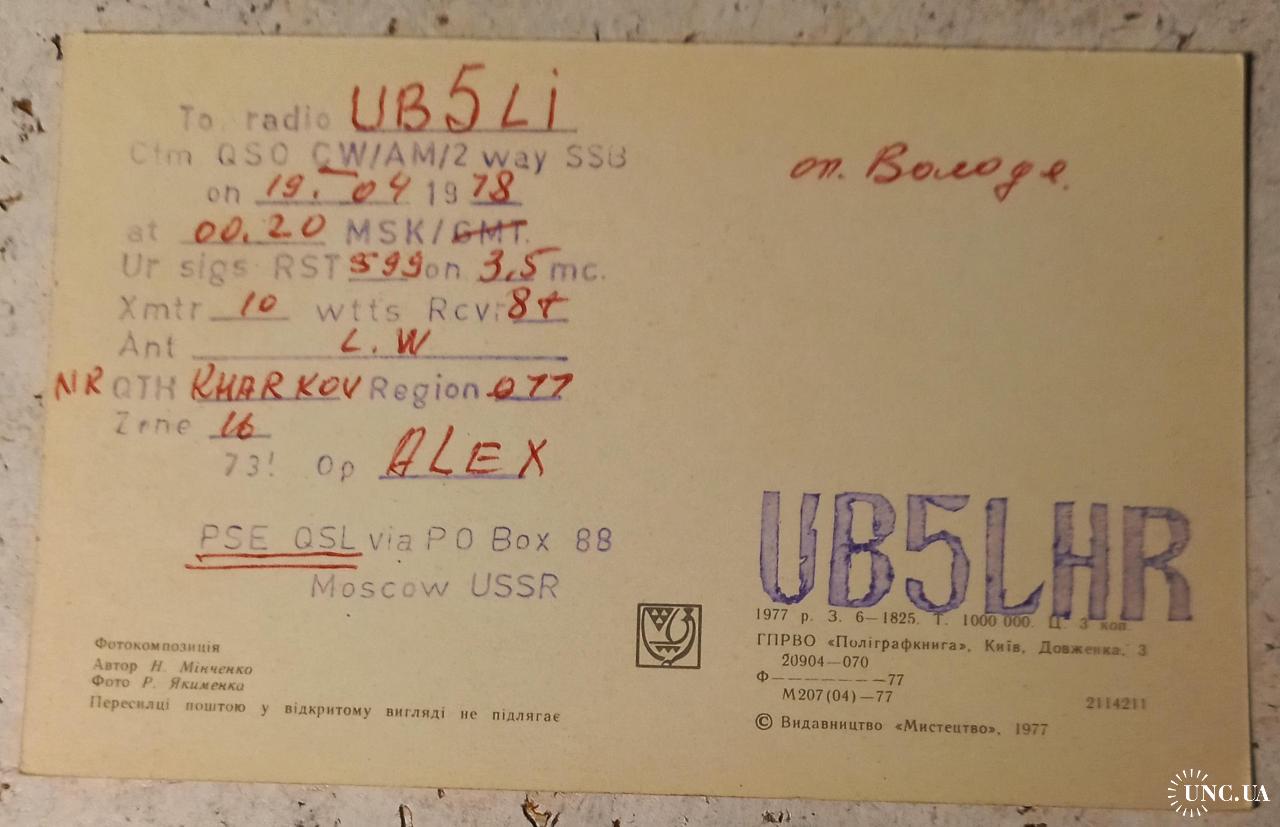 To radio UB5Li
Cfm QSO CW/AM/2 way SSB
on 19. 04 1978
at 00.20 MSK/GMT.
Ur sigs RST 599 on 3,5 mc.
Xmtr 10 wtts Rcvr 8+
Ant L.W
NR QTH KHARKOV Region 077
Zrne 16
73! Op ALEX
PSE QSL via PO Box 88
Moscow USSR
оп. Володя.
UB5LHR
Фотокомпозиція
Автор Н. Мінченко
Фото Р. Якименка
Пересилці поштою у відкритому вигляді не підлягає
1977 р. З. 6—1825. Т. 1000 000. Ц. 3 коп.
ГПРВО «Поліграфкнига», Київ, Довженка, 3
20904—070
Ф———————77
М207(04)—77
2114211
© Видавництво «Мистецтво», 1977
UNC.UA